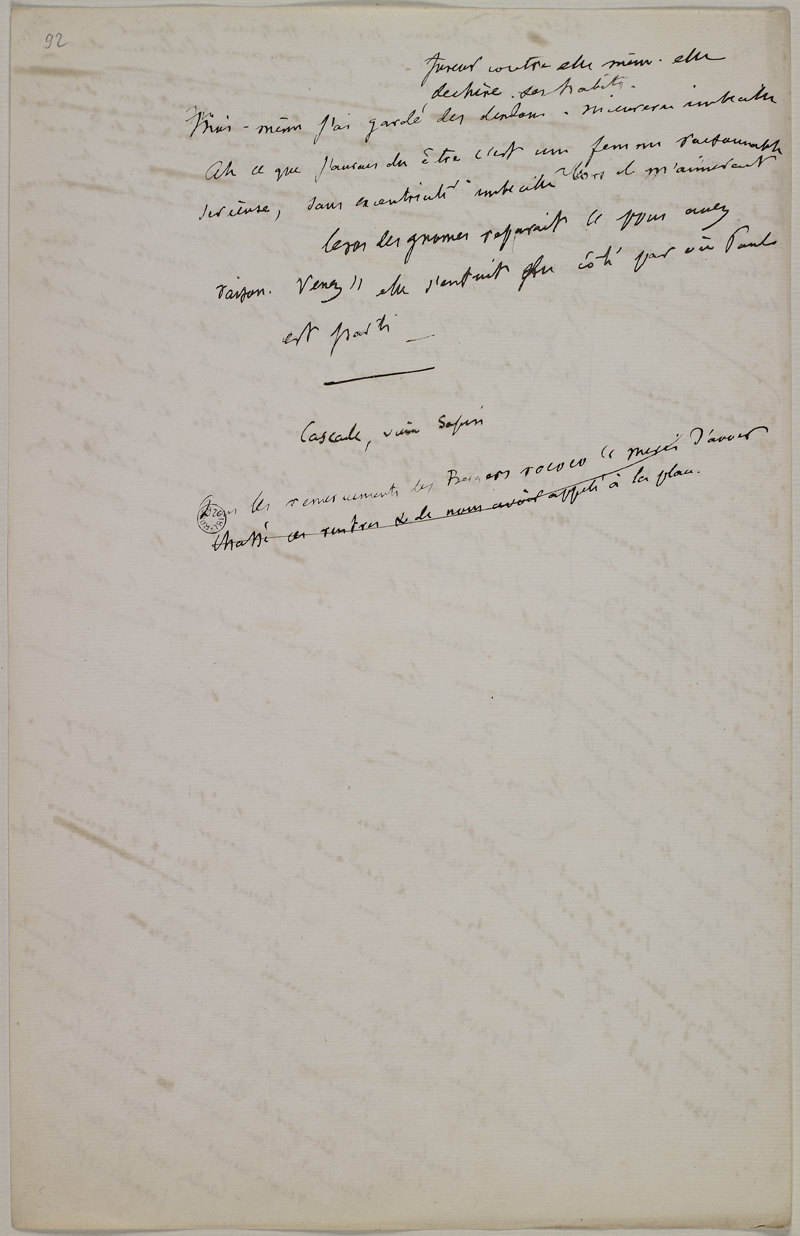 92
fureur contre elle même. elle
dechire ses habits.
Moi-même j'ai gardé des dindons. imbecille
Ah ce que j'aurais du être c'est une femme raisonnable
serieuse, sans excentricité imbecille alors il m'aimerait
le roi des gnomes reparait (( vous avez
raison. Venez )) elle s'enfuit du côté par où Paul
est parti —
Cascade, vieux Sapin
Dans les remerciements des Bergers rococo (( merci d'avoir
chassé ces rentres & de nous avoir appelé à la place.